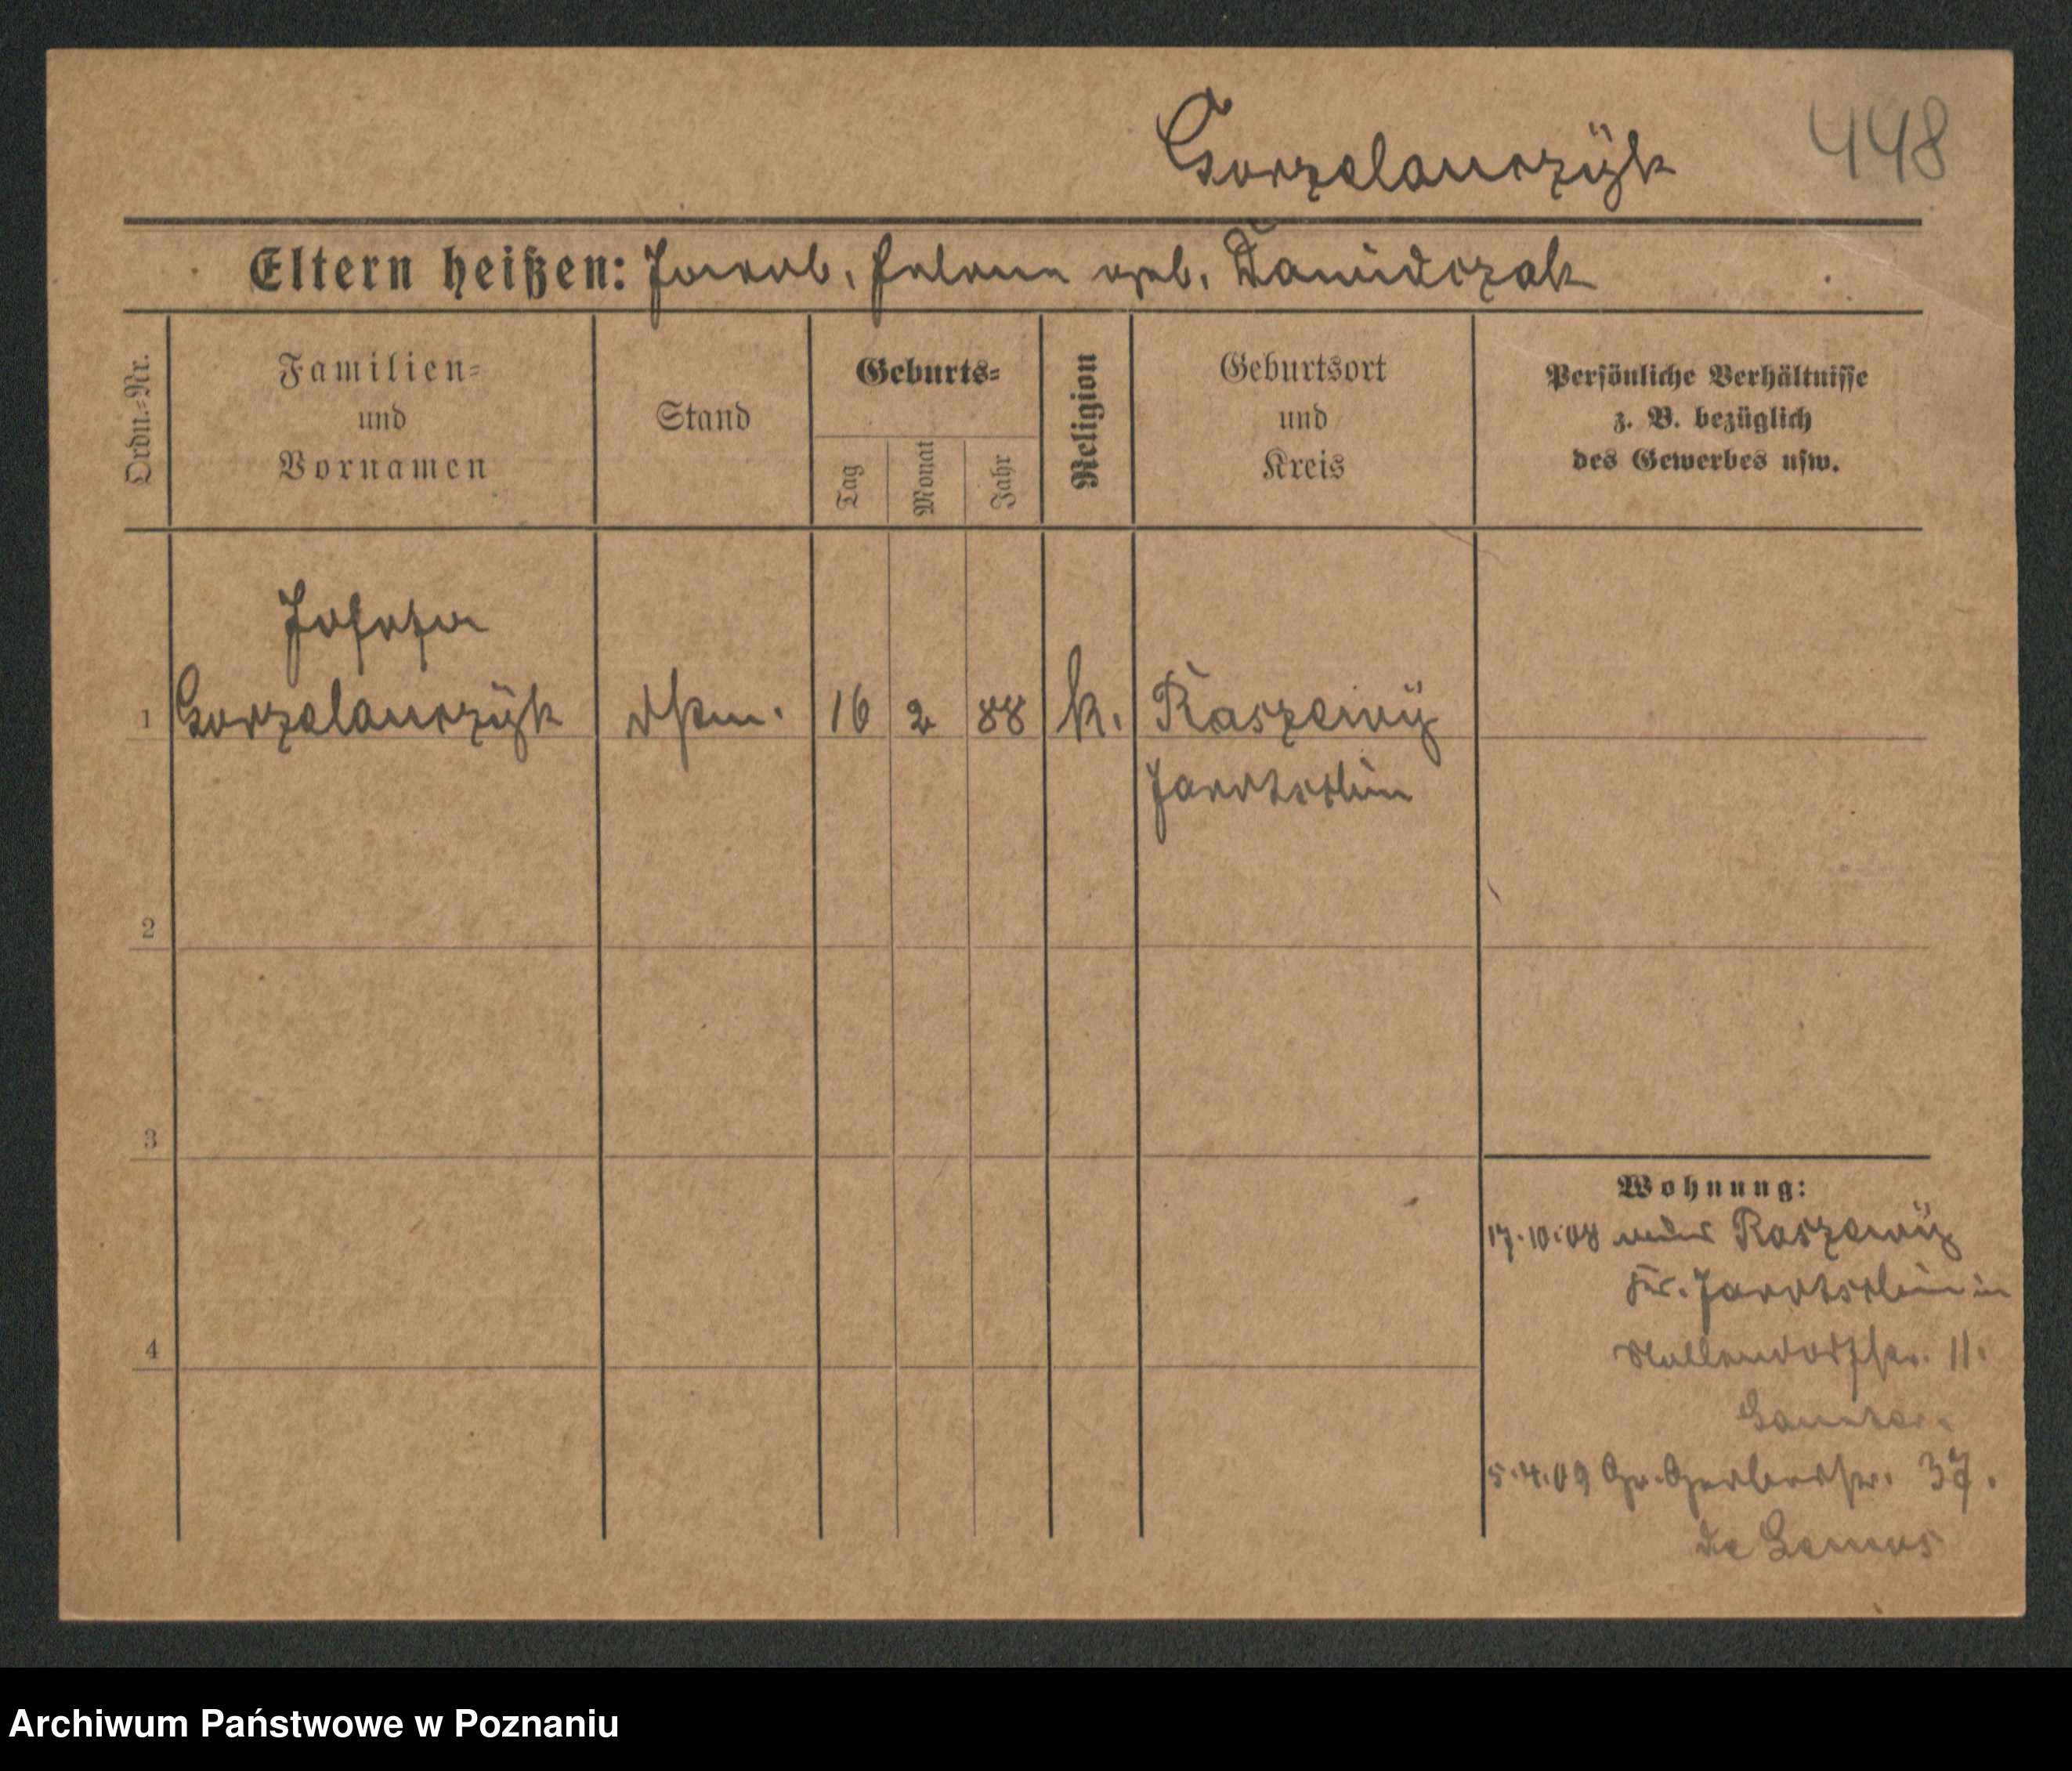 Gorzelanczÿk 448
Eltern heißen: Jacob, Helene geb. Dawidczak
Ordn.-Nr.
Familien-
und
Vornamen
Stand
Geburts-
Tag
Monat
Jahr
Religion
Geburtsort
und
Kreis
Persönliche Verhältnisse
z. B. bezüglich
des Gewerbes usw.
Josefa
1 Gorzelanczÿk 16 2 88 k. Raszewÿ
Jarotschin
2
3
4
Wohnung:
17.10.08 Raszewÿ
Kr. Jarotschin in
11.
5.4.09 Gr. Gerberstr. 37.